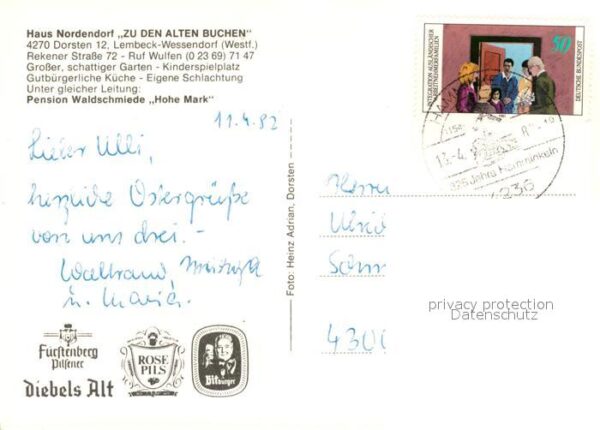 Haus Nordendorf „ZU DEN ALTEN BUCHEN"
4270 Dorsten 12, Lembeck-Wessendorf (Westf.)
Rekener Straße 72 - Ruf Wulfen (0 23 69) 71 47
Großer, schattiger Garten - Kinderspielplatz
Gutbürgerliche Küche - Eigene Schlachtung
Unter gleicher Leitung:
Pension Waldschmiede „Hohe Mark"
11.4.82
Lieber Ulli,
herzliche Ostergrüße
von uns drei. -
Waltraud,
u. Maria.
Foto: Heinz Adrian, Dorsten
INTEGRATION AUSLÄNDISCHER
ARBEITNEHMERFAMILIEN
50
DEUTSCHE BUNDESPOST
825 Jahre Hamminkeln
4236
Herrn
Ulrich
4300
privacy protection
Datenschutz
Fürstenberg
Pilsener
diebels Alt
ROSE
PILS
Bitburger